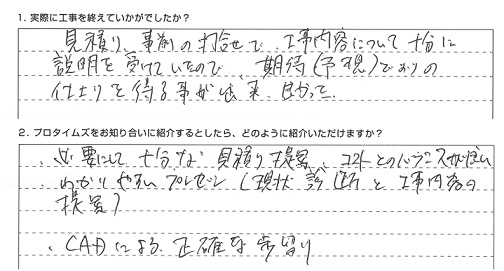 1. 実際に工事を終えていかがでしたか?
見積り、事前の打合せで、工事内容について十分に
説明を受けていたので、期待(予想)どおりの
仕上りを得る事が出来、良かった。
2. プロタイムズをお知り合いに紹介するとしたら、どのように紹介いただけますか?
・必要にして十分な見積り提案、コストとのバランスが良い
わかりやすいプレゼン(現状診断と工事内容の
提案)
・CADによる正確な歩留り